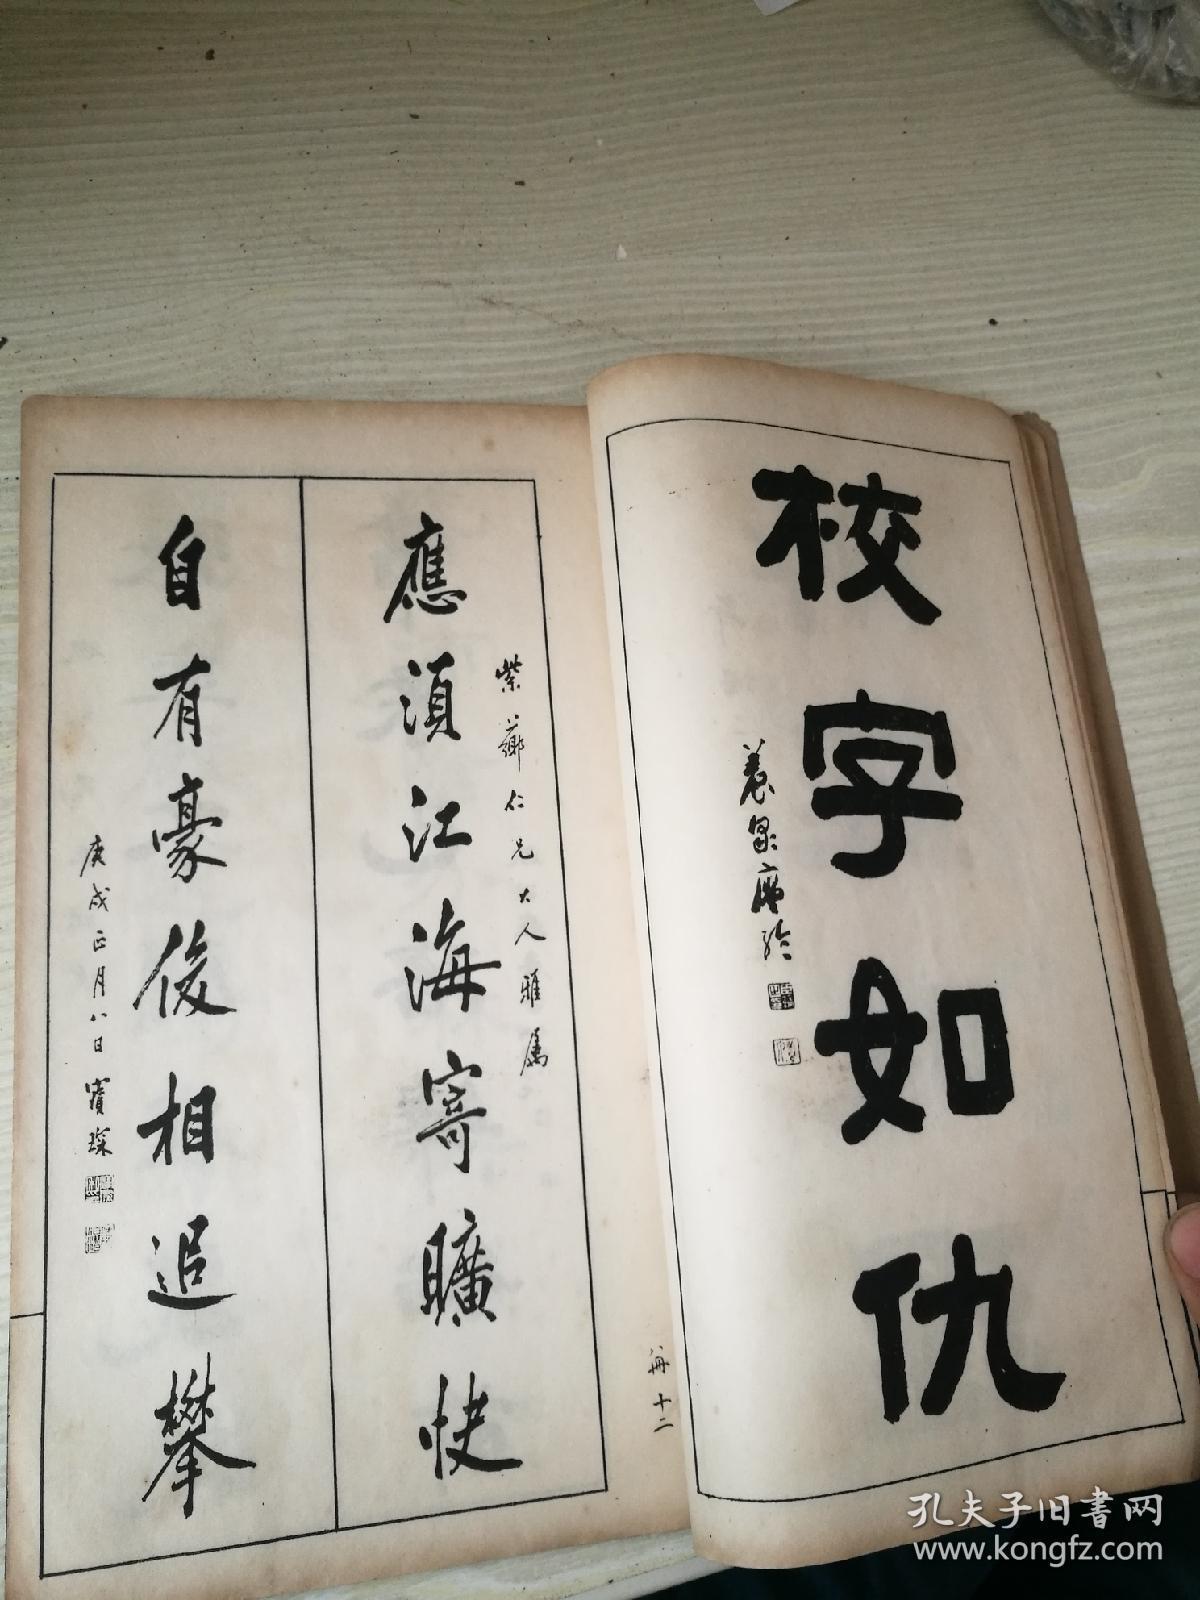 校字如仇
紫薌仁兄大人雅屬
應須江海寄曠快
自有豪俊相追攀
庚戌正月八日寶琛
冊十二
孔夫子旧書网
www.kongfz.com